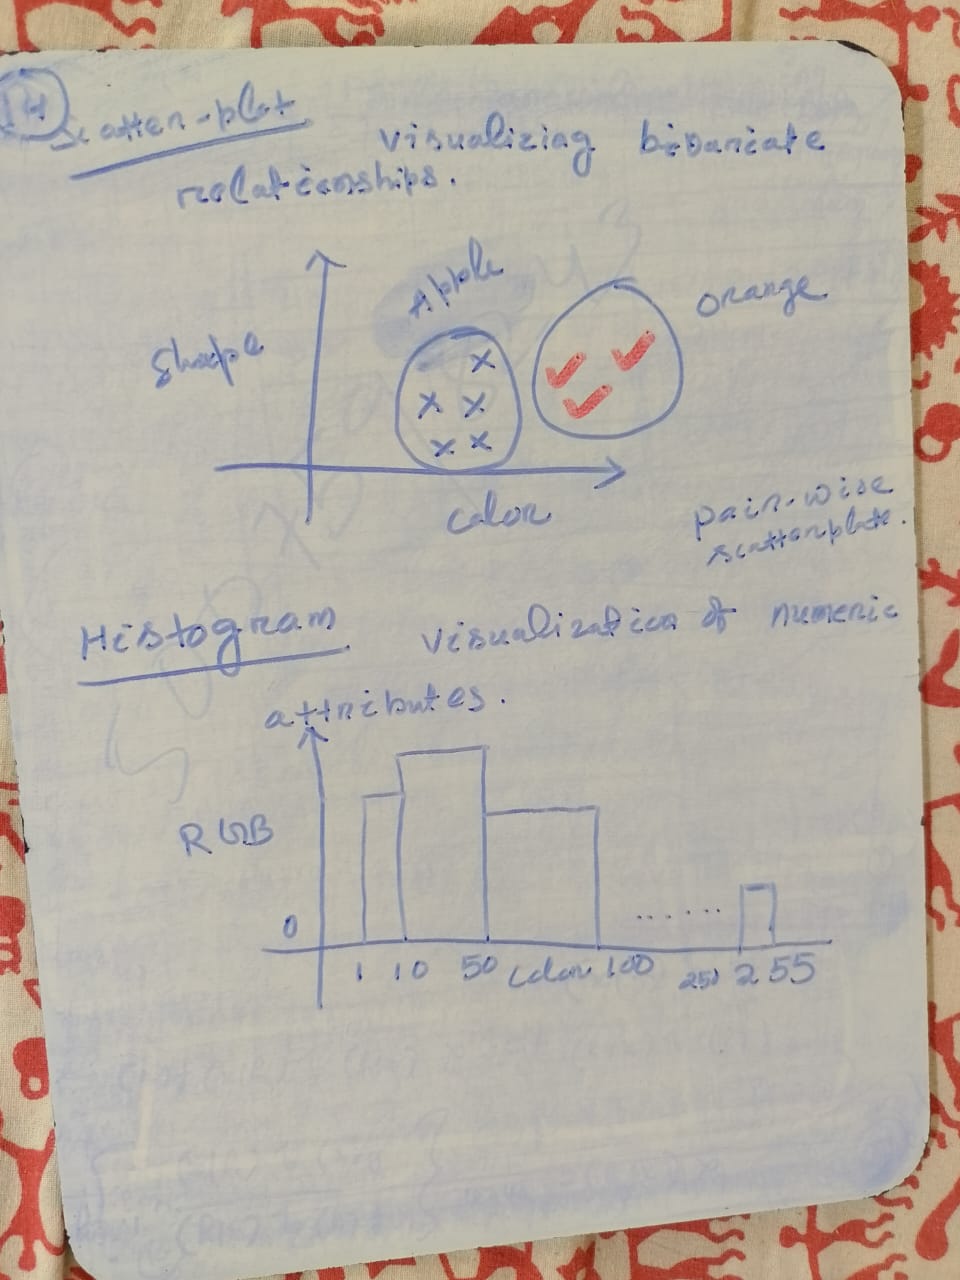 14
Scatter-plot visualizing bivariate
relationships.
Apple
orange
Shape
color
pair-wise
scatterplots.
Histogram visualization of numeric
attributes.
RGB
0
1 10 50 color 100 250 255